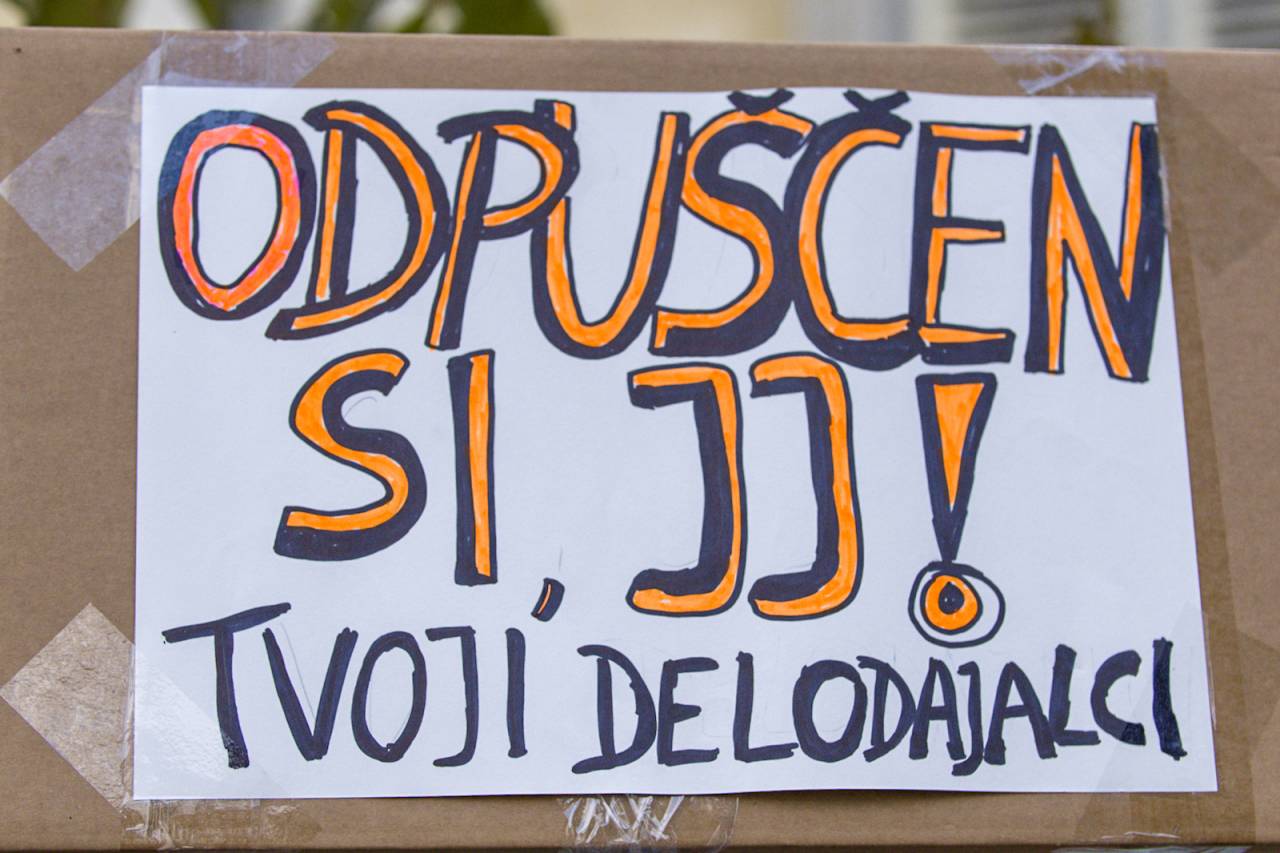 ODPUŠČEN
SI, JJ!
TVOJI DELODAJALCI